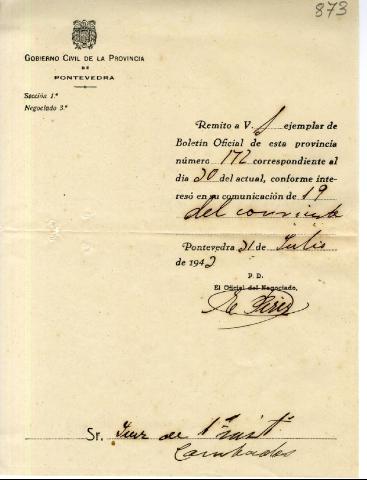 873
GOBIERNO CIVIL DE LA PROVINCIA
DE
PONTEVEDRA
Sección 1.ª
Negociado 3.º
Remito a V. 1 ejemplar de
Boletín Oficial de esta provincia
número 172 correspondiente al
día 30 del actual, conforme inte-
resó en su comunicación de 19
del corriente
Pontevedra 31 de Julio
de 1943
P. D.
El Oficial del Negociado,
Pérez
Sr. Juez de 1ª instª
Cambados